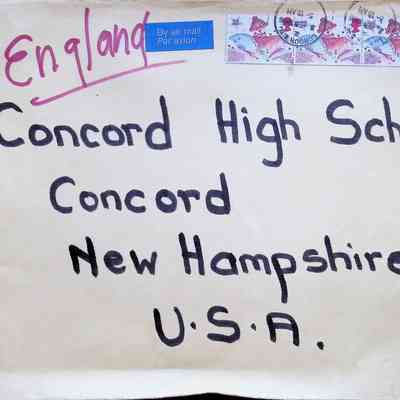 England
By air mail
Par avion
Concord High Sch
Concord
New Hampshire
U.S.A.